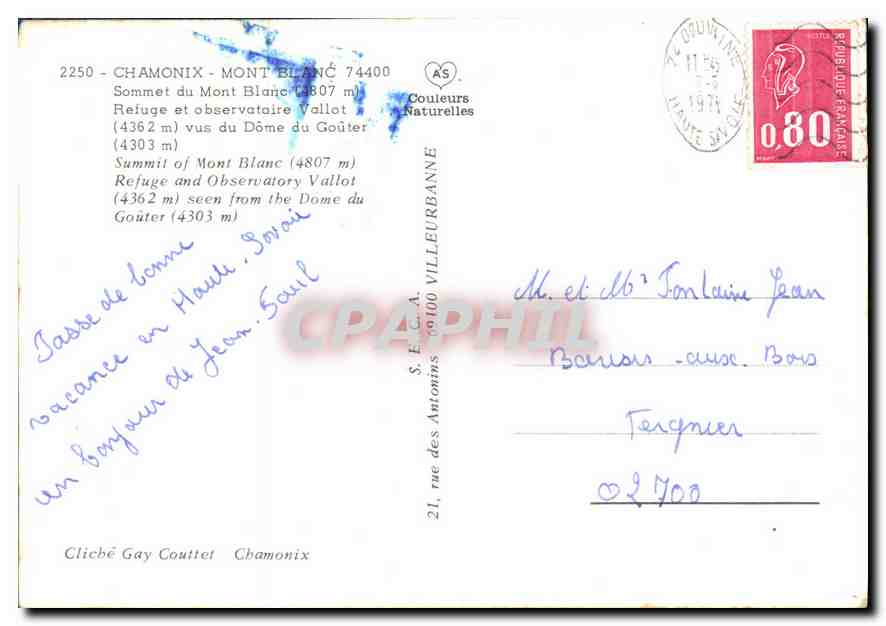 2250 - CHAMONIX - MONT BLANC 74400
Sommet du Mont Blanc (4807 m)
Refuge et observatoire Vallot
(4362 m) vus du Dôme du Goûter
(4303 m)
Summit of Mont Blanc (4807 m)
Refuge and Observatory Vallot
(4362 m) seen from the Dome du
Goûter (4303 m)
AS
Couleurs
Naturelles
74 DOUVAINE
HAUTE SAVOIE
REPUBLIQUE FRANÇAISE
POSTES
0,80
Passe de bonne
vacance en Haute-Savoie
un bonjour de Jean-Paul
S. E. C. A.
21, rue des Antonins 69100 VILLEURBANNE
M. et Me Fontaine Jean
aux-Bois
Tergnier
02700
Cliché Gay Couttet Chamonix
CPAPHIL